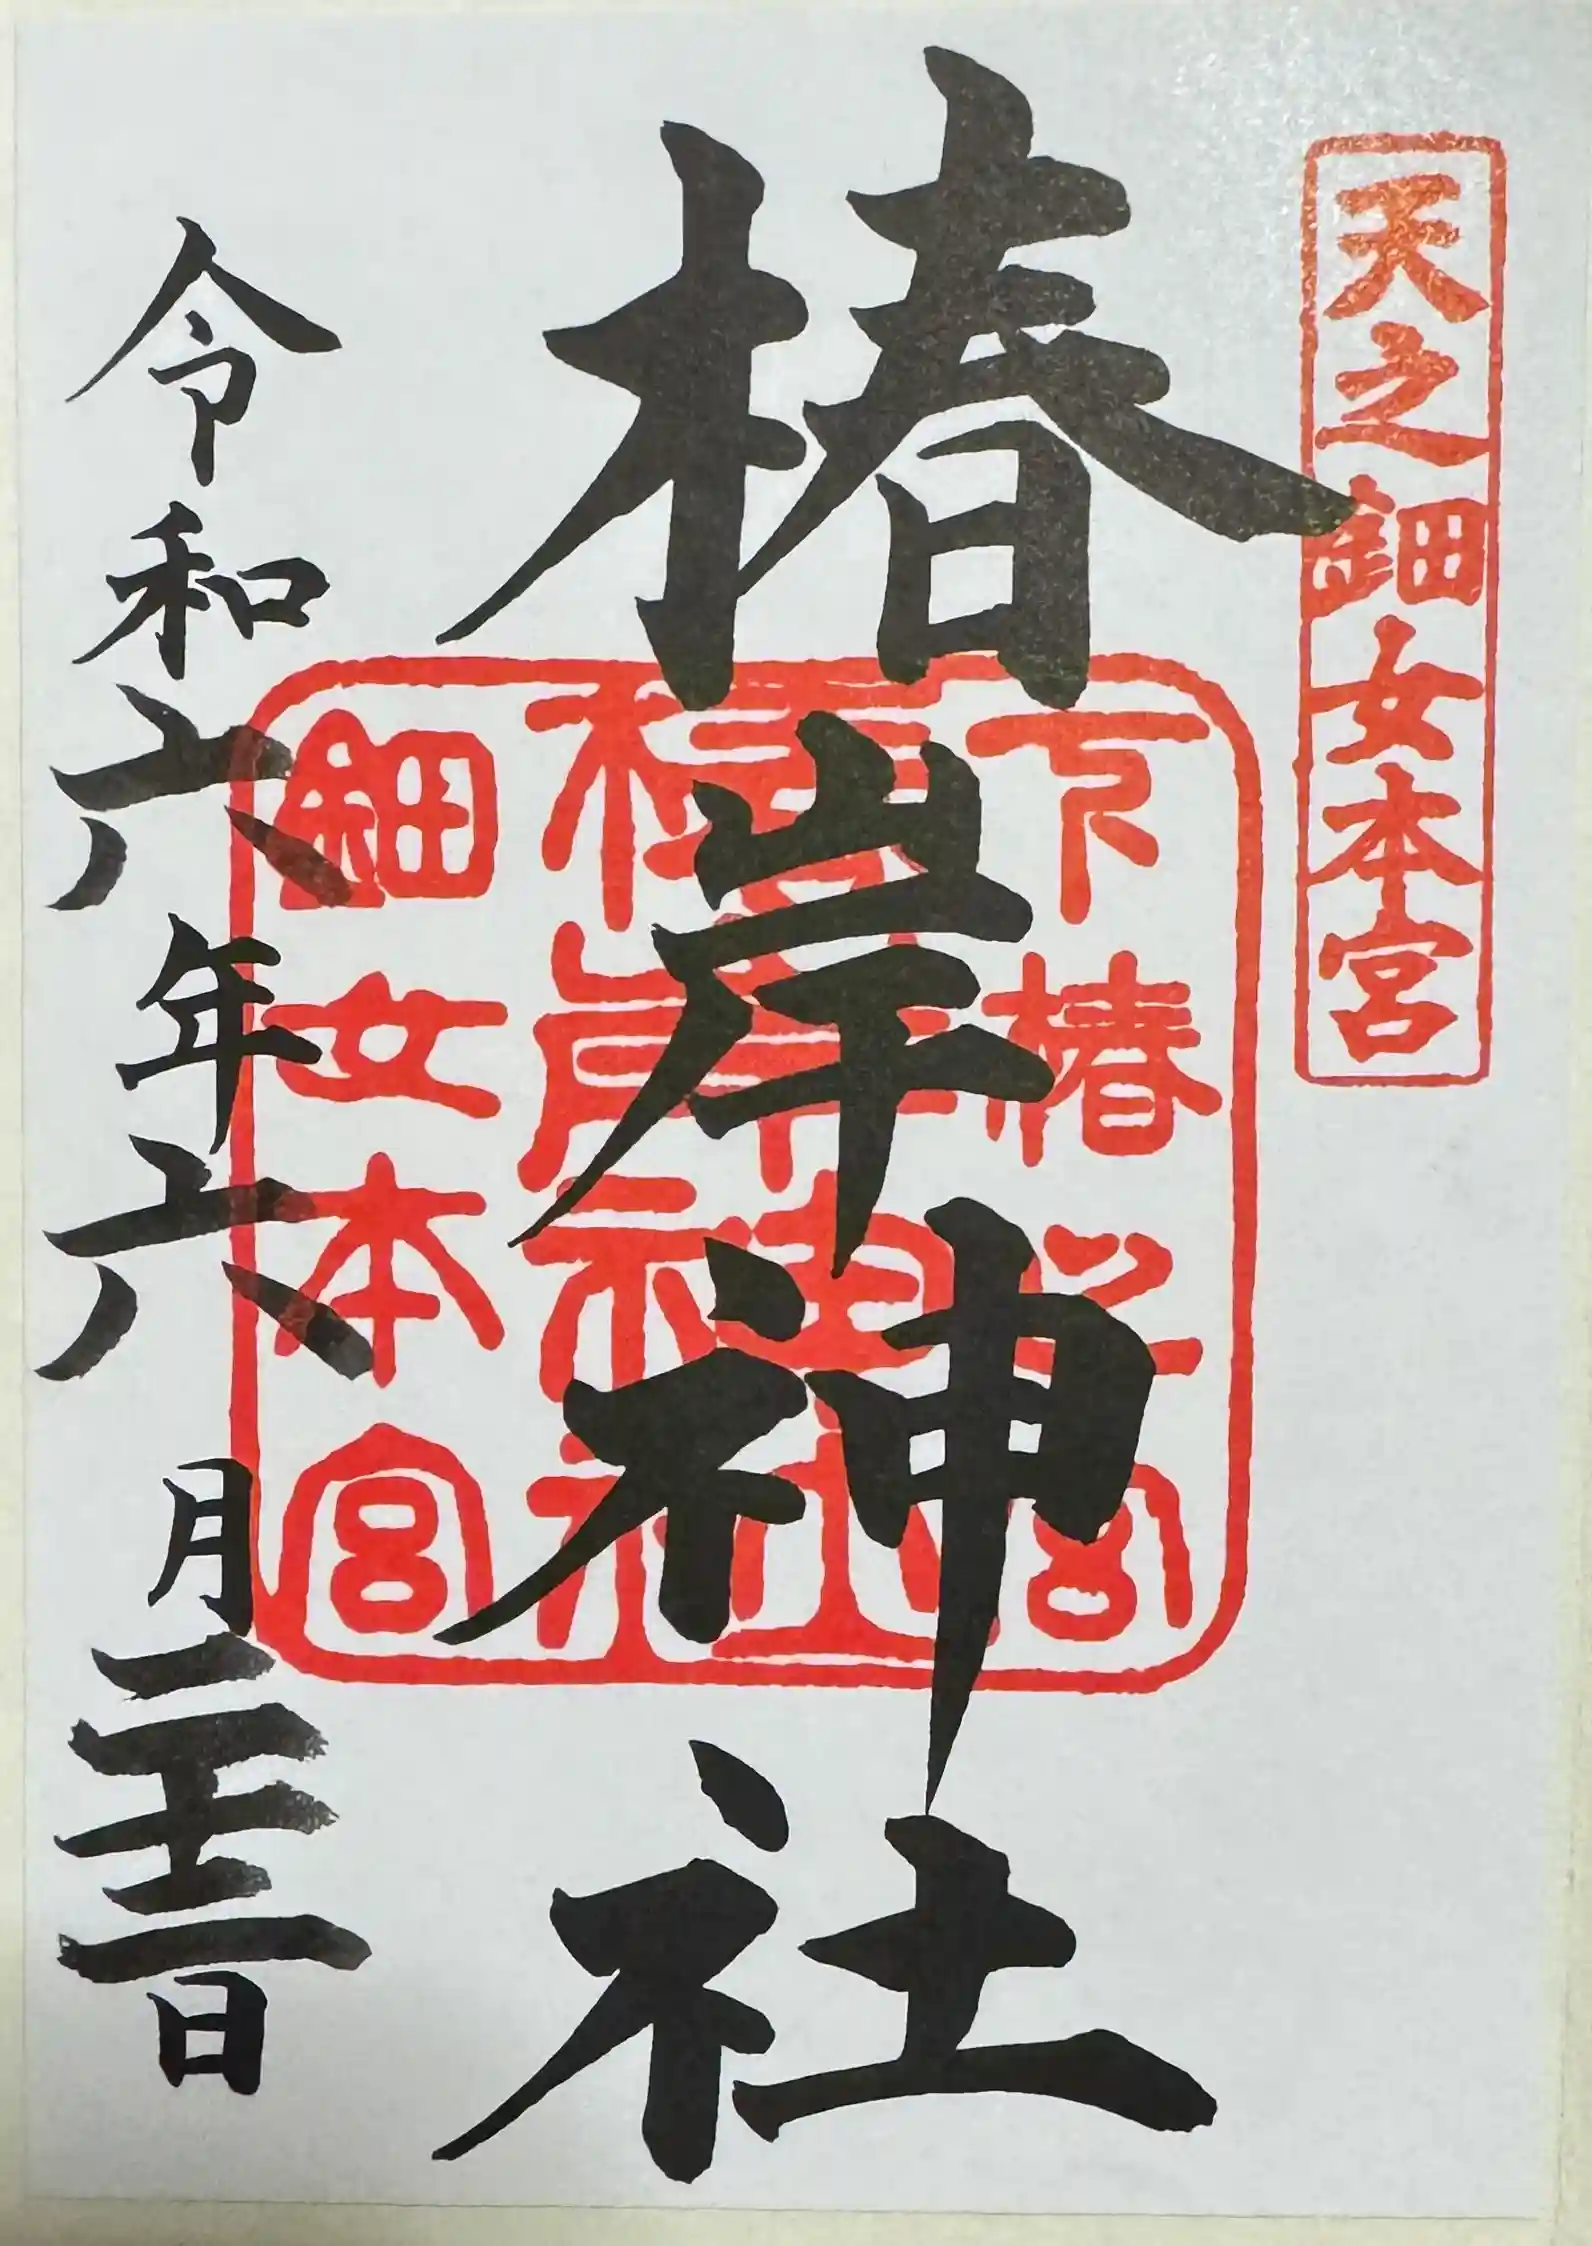 天之鈿女本宮
椿岸神社
下椿 宮
椿岸神社
鈿女本宮
令和六年六月二十二日